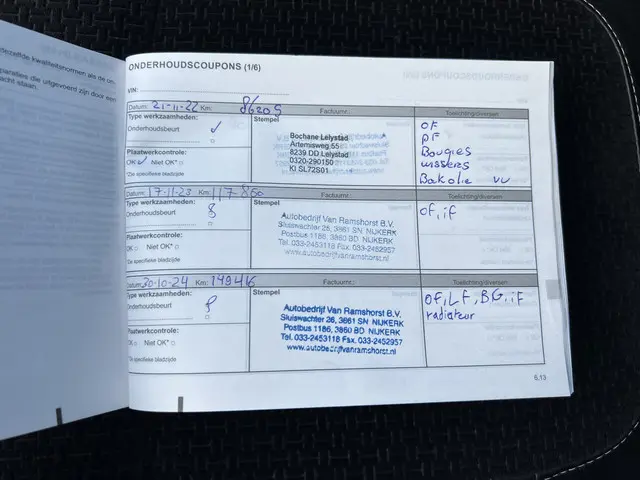 dezelfde kwaliteitsnormen als de on-
paraties die uitgevoerd zijn door een
acht staan.
ONDERHOUDSCOUPONS (1/6)
VIN:
Datum: 21-11-22 Km: 86205 Factuurnr.: Toelichting/diversen
Type werkzaamheden:
Onderhoudsbeurt ✓
Stempel
Bochane Lelystad
Artemisweg 55
8239 DD Lelystad
0320-290150
KI SL72S01
OF
PF
Bougies
wissers
Bak olie vv
Plaatwerkcontrole:
OK ✓ Niet OK* □
*Zie specifieke bladzijde
Datum: 17-11-23 Km: 117860 Factuurnr.: Toelichting/diversen
Type werkzaamheden:
Onderhoudsbeurt
Stempel
Autobedrijf Van Ramshorst B.V.
Sluiswachter 26, 3861 SN NIJKERK
Postbus 1186, 3860 BD NIJKERK
Tel. 033-2453118 Fax. 033-2452957
www.autobedrijfvanramshorst.nl
of, if
Plaatwerkcontrole:
OK □ Niet OK* □
*Zie specifieke bladzijde
Datum: 30-10-24 Km: 149416 Factuurnr.: Toelichting/diversen
Type werkzaamheden:
Onderhoudsbeurt
Stempel
Autobedrijf Van Ramshorst B.V.
Sluiswachter 26, 3861 SN NIJKERK
Postbus 1186, 3860 BD NIJKERK
Tel. 033-2453118 Fax. 033-2452957
www.autobedrijfvanramshorst.nl
OF, LF, BG, if
radiateur
Plaatwerkcontrole:
OK □ Niet OK* □
*Zie specifieke bladzijde
6.13